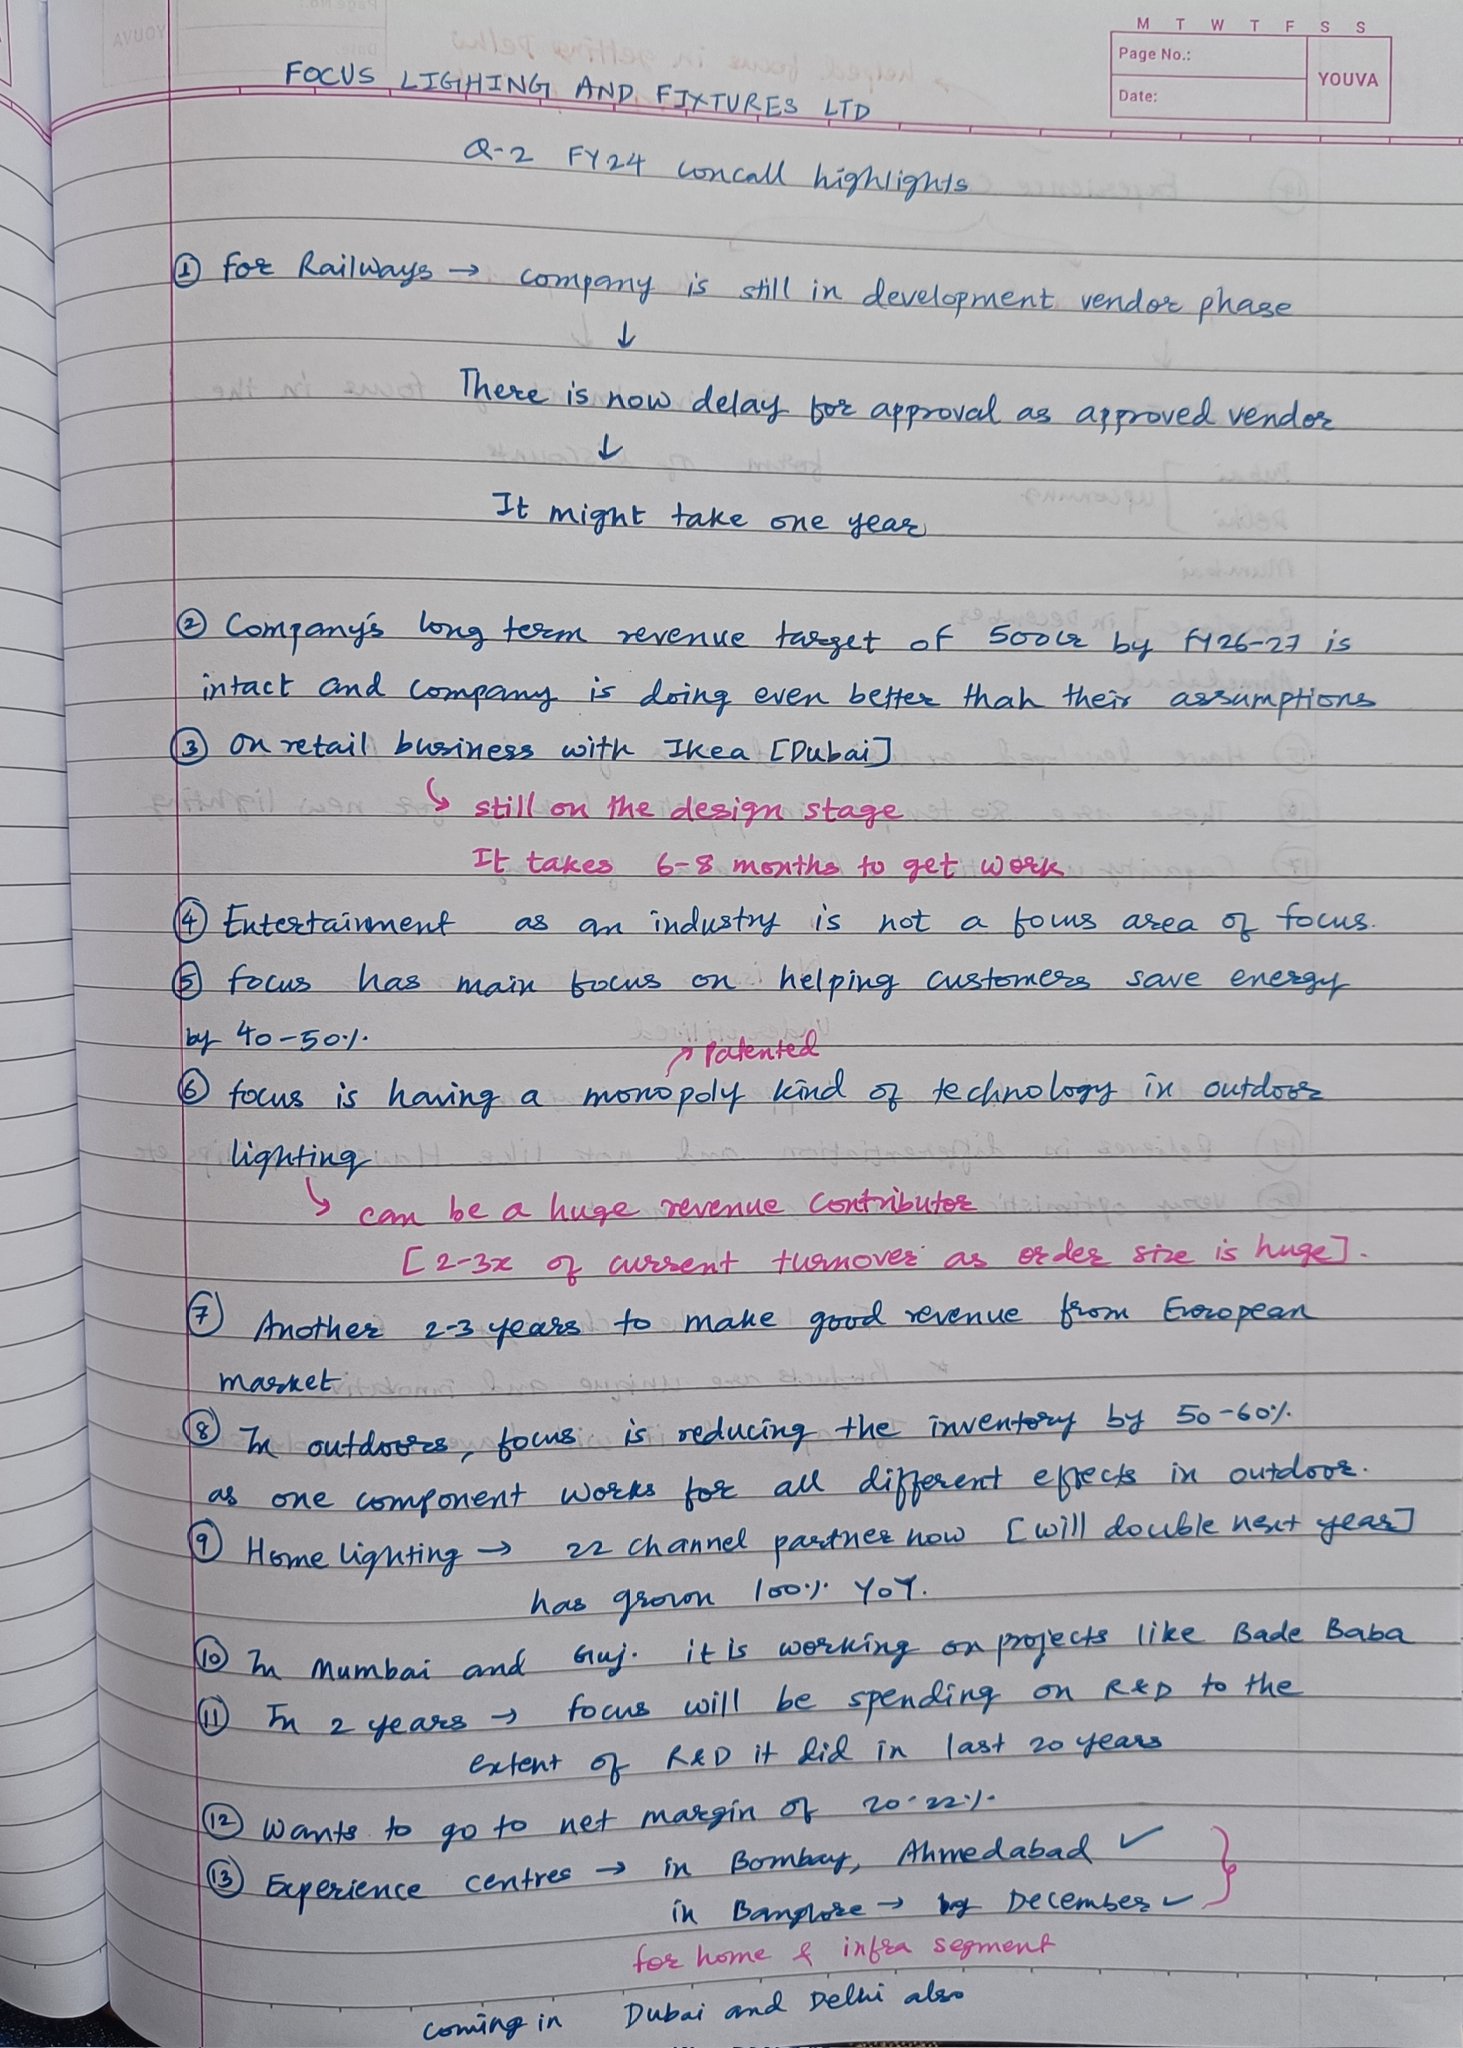 M T W T F S S
Page No.:
YOUVA
Date:
FOCUS LIGHING AND FIXTURES LTD
Q-2 FY24 concall highlights
① For Railways → company is still in development vendor phase
↓
There is now delay for approval as approved vendor
↓
It might take one year
② Company's long term revenue target of 500cr by FY26-27 is
intact and company is doing even better than their assumptions
③ on retail business with Ikea [Dubai]
↳ still on the design stage
It takes 6-8 months to get work
④ Entertainment as an industry is not a focus area of focus.
⑤ focus has main focus on helping customers save energy
by 40-50%.
↗ Patented
⑥ focus is having a monopoly kind of technology in outdoor
lighting
↳ can be a huge revenue contributor
[2-3x of current turnover as order size is huge].
⑦ Another 2-3 years to make good revenue from European
market
⑧ In outdoors, focus is reducing the inventory by 50-60%.
as one component works for all different effects in outdoor.
⑨ Home lighting → 22 channel partner now [will double next year]
has grown 100% YoY.
⑩ In Mumbai and Guj. it is working on projects like Bade Baba
⑪ In 2 years → focus will be spending on R&D to the
extent of R&D it did in last 20 years
⑫ Wants to go to net margin of 20-22%.
⑬ Experience centres → in Bombay, Ahmedabad ✓
in Banglore → by December ✓
for home & infra segment
coming in Dubai and Delhi also